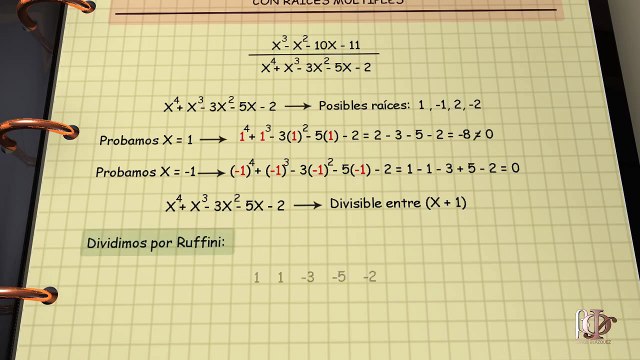 CON RAÍCES MÚLTIPLES
X³ - X² - 10X - 11
X⁴ + X³ - 3X² - 5X - 2
X⁴ + X³ - 3X² - 5X - 2 → Posibles raíces: 1 , -1, 2, -2
Probamos X = 1 → 1⁴ + 1³ - 3(1)² - 5(1) - 2 = 2 - 3 - 5 - 2 = -8 ≠ 0
Probamos X = -1 → (-1)⁴ + (-1)³ - 3(-1)² - 5(-1) - 2 = 1 - 1 - 3 + 5 - 2 = 0
X⁴ + X³ - 3X² - 5X - 2 → Divisible entre (X + 1)
Dividimos por Ruffini:
1 1 -3 -5 -2